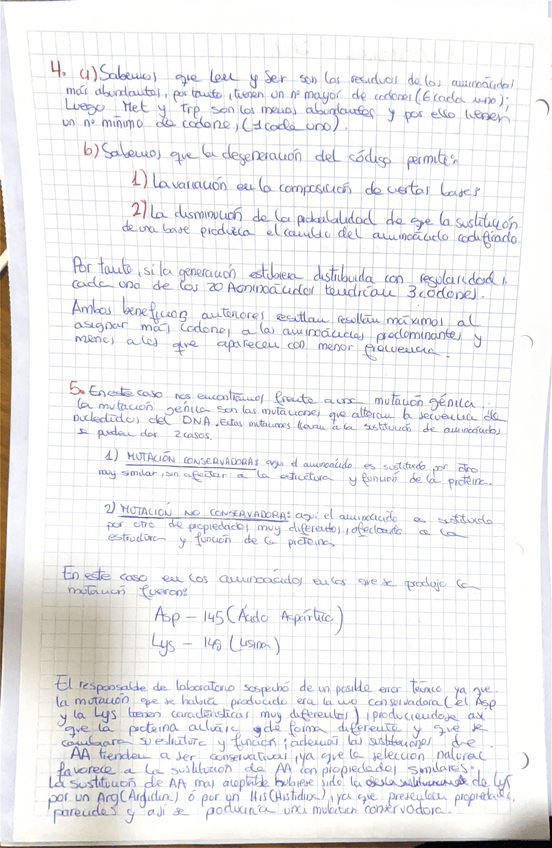 4. a) Sabemos que Leu y Ser son los residuos de los aminoácidos
más abundantes, por tanto, tienen un nº mayor de codones (6 cada uno);
Luego Met y Trp son los menos abundantes y por ello tienen
un nº mínimo de codones (1 cada uno).
b) Sabemos que la degeneración del código permite:
1) La variación en la composición de ciertas bases
2) La disminución de la probabilidad de que la sustitución
de una base produzca el cambio del aminoácido codificado
Por tanto, si la generación estubiera distribuida con regularidad,
cada uno de los 20 Aminoácidos tendrían 3 codones.
Ambos beneficios anteriores resultan máximos al
asignar más codones a los aminoácidos predominantes y
menos a los que aparecen con menor frecuencia.
5. En este caso nos encontramos frente a una mutación génica.
La mutación génica son las mutaciones que alteran la secuencia de
nucleótidos del DNA, estas mutaciones llevan a la sustitución de aminoácidos
se pueden dar 2 casos.
1) MUTACIÓN CONSERVADORA: aquí el aminoácido es sustituido por otro
muy similar, sin afectar a la estructura y función de la proteína.
2) MUTACIÓN NO CONSERVADORA: aquí el aminoácido es sustituido
por otro de propiedades muy diferentes, afectando a la
estructura y función de la proteína
En este caso en los aminoácidos en los que se produjo la
mutación fueron:
Asp - 145 (Ácido Aspártico)
Lys - 149 (Lisina)
El responsable de laboratorio sospechó de un posible error técnico ya que
la mutación que se había producido era la no conservadora (el Asp
y la Lys tienen características muy diferentes), produciendose así
que la proteína actuáse de forma diferente y que se
cambiara su estructura y función; además las sustituciones de
AA tienden a ser conservativas, ya que la selección natural
favorece a la sustitución de AA con propiedades similares.
La sustitución de AA más aceptable hubiese sido la de Lys
por un Arg (Arginina) ó por un His (Histidina), ya que presentan propiedades
parecidas y así se produciría una mutación conservadora.